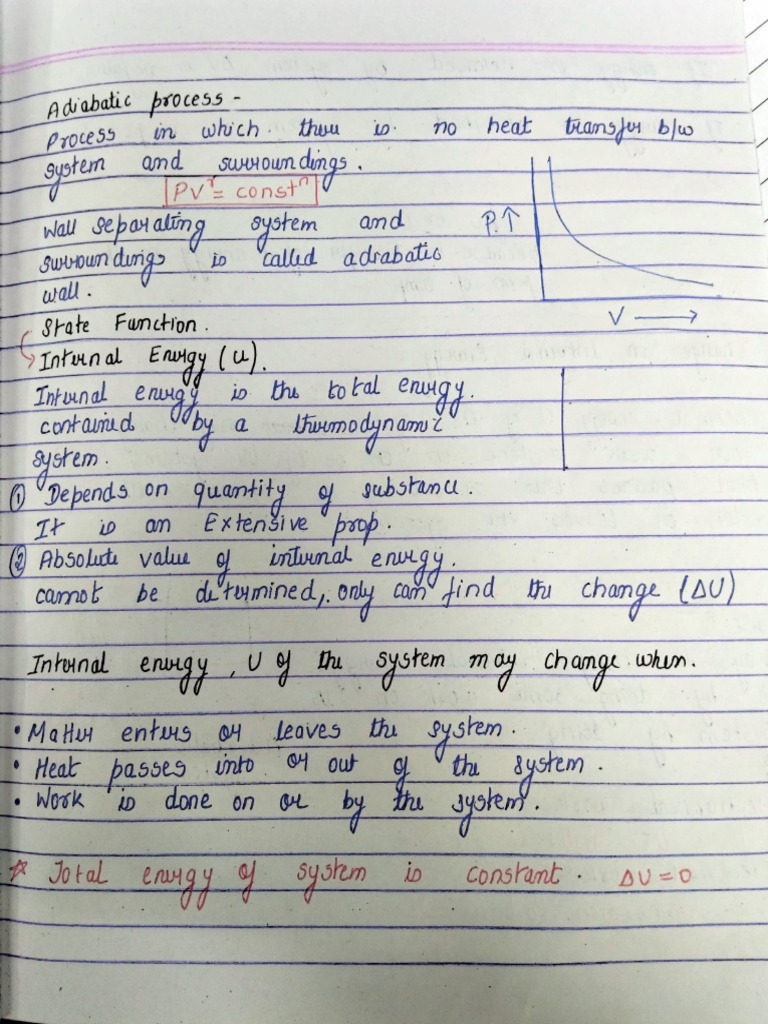 Adiabatic process -
Process in which there is no heat transfer b/w
system and surroundings.
PVʳ = constⁿ
Wall separating system and
surroundings is called adiabatic
wall.
P↑
V ⟶
State Function.
Internal Energy (u).
Internal energy is the total energy.
contained by a thermodynamic
system.
① Depends on quantity of substance.
It is an Extensive prop.
② Absolute value of internal energy.
cannot be determined, only can find the change (ΔU)
Internal energy, U of the system may change when.
• Matter enters or leaves the system.
• Heat passes into or out of the system.
• Work is done on or by the system.
☆ Total energy of system is constant. ΔU = 0